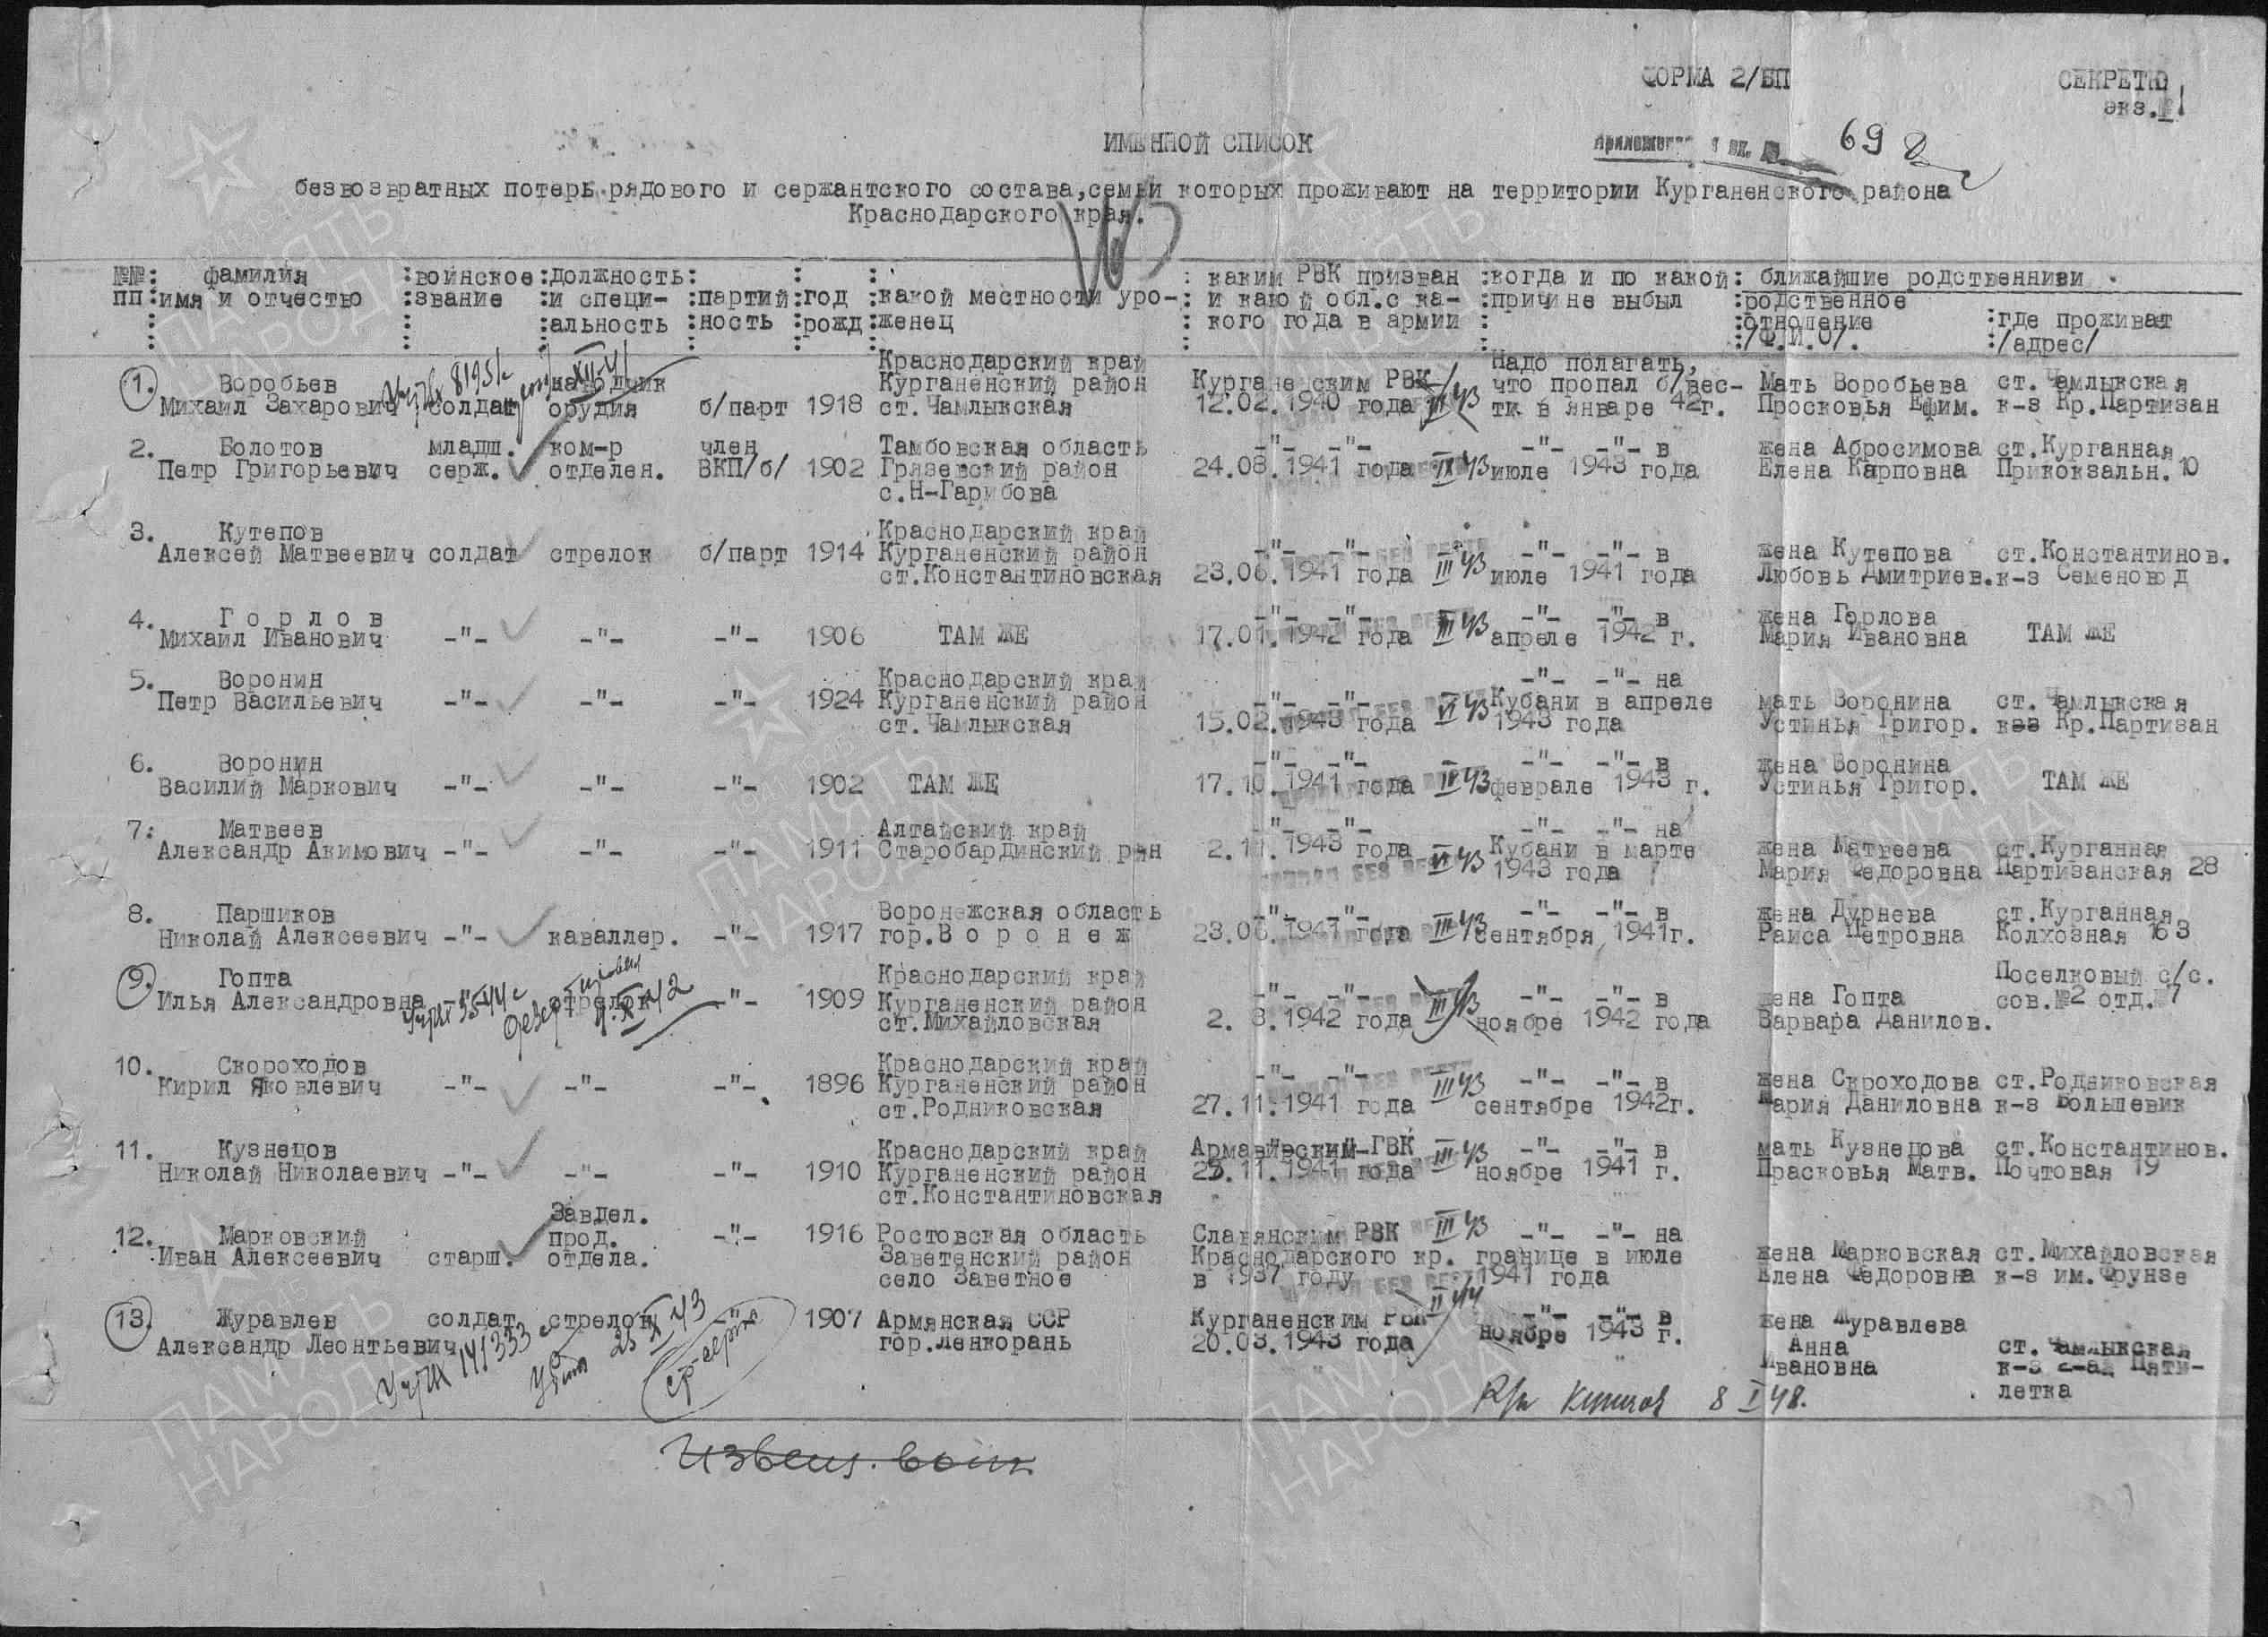 ФОРМА 2/БП СЕКРЕТНО
экз.№1
ИМЕННОЙ СПИСОК 69
безвозвратных потерь рядового и сержантского состава,семьи которых проживают на территории Курганенского района
Краснодарского края.
№№: фамилия :воинское:должность: : : : каким РВК призван :когда и по какой: ближайшие родственниви
пп:имя и отчество :звание :и специ- :партий:год :какой местности уро-: и каюй обл.с ка- :причине выбыл :родственное
: : :альность :ность :рожд:женец : кого года в армии : :отношение :где проживает
:/Ф.И.О/. :/адрес/
Краснодарский край Надо полагать,
1. Воробьев наводчик Курганенский район Курганенским РВК что пропал б/вес- Мать Воробьева ст.Чамлыкская
Михаил Захарович солдат орудия б/парт 1918 ст.Чамлыкская 12.02.1940 года III 43 ти в январе 42г. Просковья Ефим. к-з Кр.Партизан
2. Болотов младш. ком-р член Тамбовская область -"- -"- -"- -"- в жена Абросимова ст.Курганная
Петр Григорьевич серж. отделен. ВКП/б/ 1902 Грязевский район 24.08.1941 года IX 43 июле 1943 года Елена Карповна Привокзальн.10
с.Н-Гарибова
3. Кутепов Краснодарский край
Алексей Матвеевич солдат стрелок б/парт 1914 Курганенский район -"- -"- III 43 -"- -"- в жена Кутепова ст.Константинов.
ст.Константиновская 23.06.1941 года июле 1941 года Любовь Дмитриев.к-з
4. Г о р л о в -"- -"- -"- -"- в жена Горлова
Михаил Иванович -"- -"- -"- 1906 ТАМ ЖЕ 17.01.1942 года III 43 апреле 1942 г. Мария Ивановна ТАМ ЖЕ
5. Воронин Краснодарский край -"- -"- на
Петр Васильевич -"- -"- -"- 1924 Курганенский район -"- -"- VI 43 Кубани в апреле мать Воронина ст.Чамлыкская
ст.Чамлыкская 15.02.1943 года 1943 года Устинья Григор. Кр.Партизан
6. Воронин -"- -"- -"- -"- в жена Воронина
Василий Маркович -"- -"- -"- 1902 ТАМ ЖЕ 17.10.1941 года IV 43 феврале 1943 г. Устинья Григор. ТАМ ЖЕ
7. Матвеев Алтайский край -"- -"- -"- -"- на
Александр Акимович -"- -"- -"- 1911 Старобардинский р-н 2.11.1943 года VI 43 Кубани в марте жена Матвеева ст.Курганная
1943 года Мария Федоровна Партизанская 28
8. Паршиков Воронежская область -"- -"- -"- -"- в жена Дурнева ст.Курганная
Николай Алексеевич -"- каваллер. -"- 1917 гор.В о р о н е ж 23.06.1941 года III 43 сентября 1941г. Раиса Петровна Колхозная 163
9. Гопта Краснодарский край Поселковый с/с.
Илья Александровна стрелок -"- 1909 Курганенский район -"- -"- III 43 -"- -"- в жена Гопта сов.№2 отд.№7
ст.Михайловская 2. 8.1942 года ноябре 1942 года Варвара Данилов.
10. Скороходов Краснодарский край
Кирил Яковлевич -"- -"- -"- 1896 Курганенский район -"- -"- III 43 -"- -"- в жена Скроходова ст.Родниковская
ст.Родниковская 27.11.1941 года сентябре 1942г. Мария Даниловна к-з Большевик
11. Кузнецов Краснодарский край Армавирским-ГВК III 43 -"- -"- в мать Кузнецова ст.Константинов.
Николай Николаевич -"- -"- -"- 1910 Курганенский район 25.11.1941 года ноябре 1941 г. Прасковья Матв. Почтовая 19
ст.Константиновская
Завдел.
12. Марковский прод. -"- 1916 Ростовская область Славянским РВК III 43 -"- -"- на
Иван Алексеевич старш. отдела. Заветенский район Краснодарского кр. границе в июле жена Марковская ст.Михайловская
село Заветное в 1937 году 1941 года Елена Федоровна к-з им.Фрунзе
13. Журавлев солдат стрелок 1907 Армянская ССР Курганенским РВК II 44 -"- -"- в жена Журавлева
Александр Леонтьевич гор.Ленкорань 20.03.1943 года ноябре 1943 г. Анна ст.Чамлыкская
Ивановна к-з 2-ая Пяти-
летка
141333 убит 25 XI 43
8 I 48.